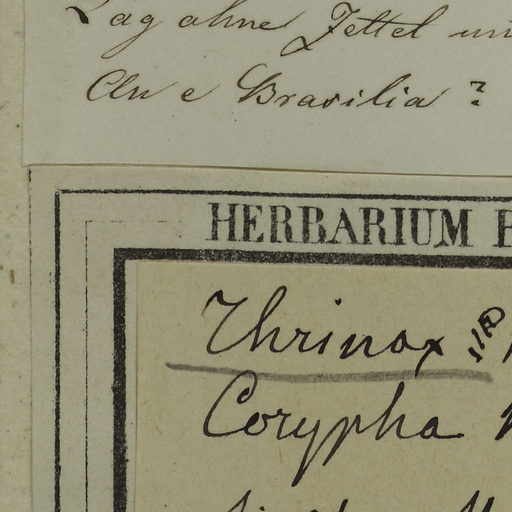 Lag ohne Zettel
An e Brasilia?
HERBARIUM
Thrinax
Corypha